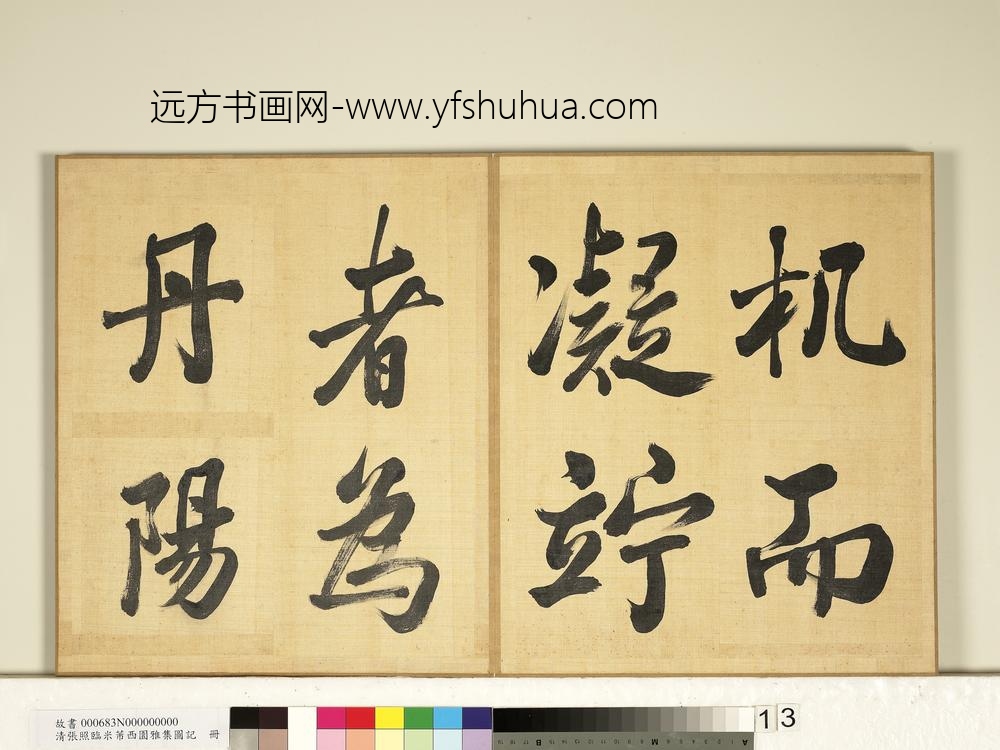 远方书画网-www.yfshuhua.com
机而
凝竚
者為
丹陽
故書 000683N000000000
清張照臨米芾西園雅集圖記 冊
13